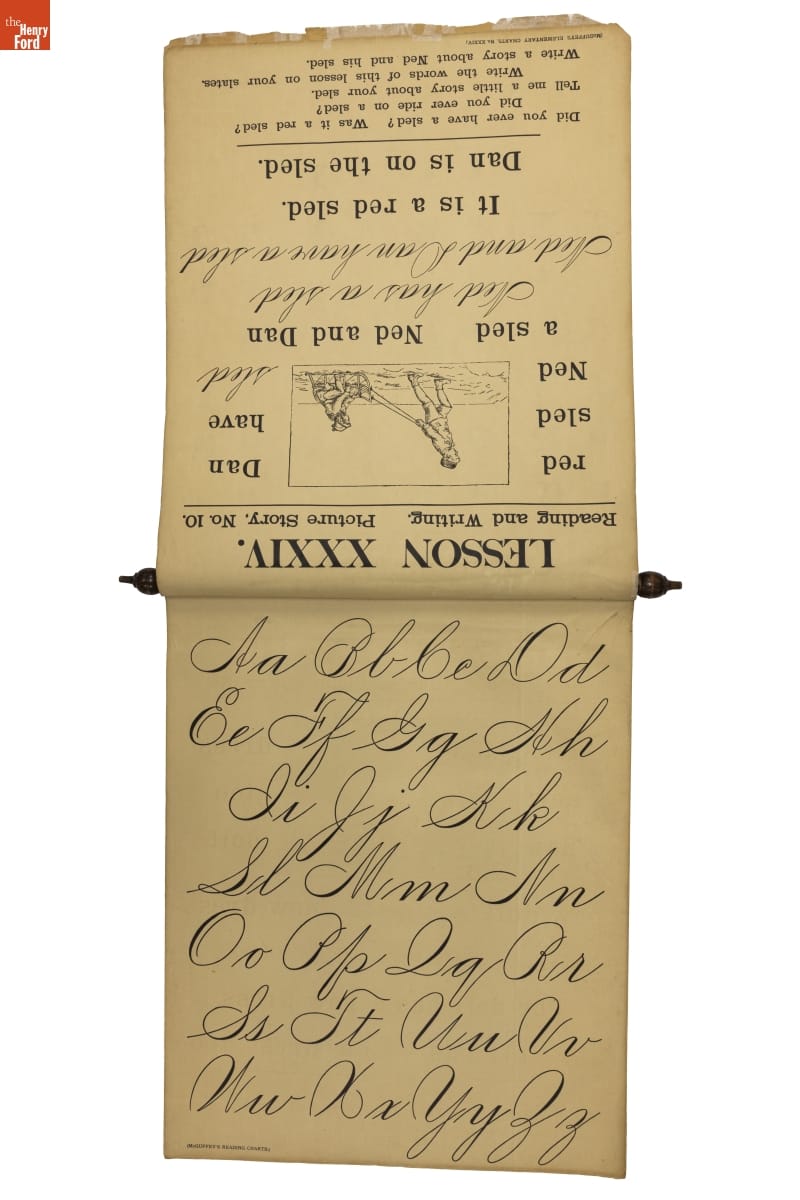 the
Henry
Ford
LESSON XXXIV.
Reading and Writing. Picture Story, No. 10.
red Dan
sled have
Ned sled
a sled Ned and Dan
Ned has a sled
Ned and Dan have a sled
It is a red sled.
Dan is on the sled.
Did you ever have a sled? Was it a red sled?
Did you ever ride on a sled?
Tell me a little story about your sled.
Write the words of this lesson on your slates.
Write a story about Ned and his sled.
(McGUFFEY'S ELEMENTARY CHARTS, No. XXXIV.)
Aa Bb Cc Dd
Ee Ff Gg Hh
Ii Jj Kk
Ll Mm Nn
Oo Pp Qq Rr
Ss Tt Uu Vv
Ww Xx Yy Zz
(McGUFFEY'S READING CHARTS.)